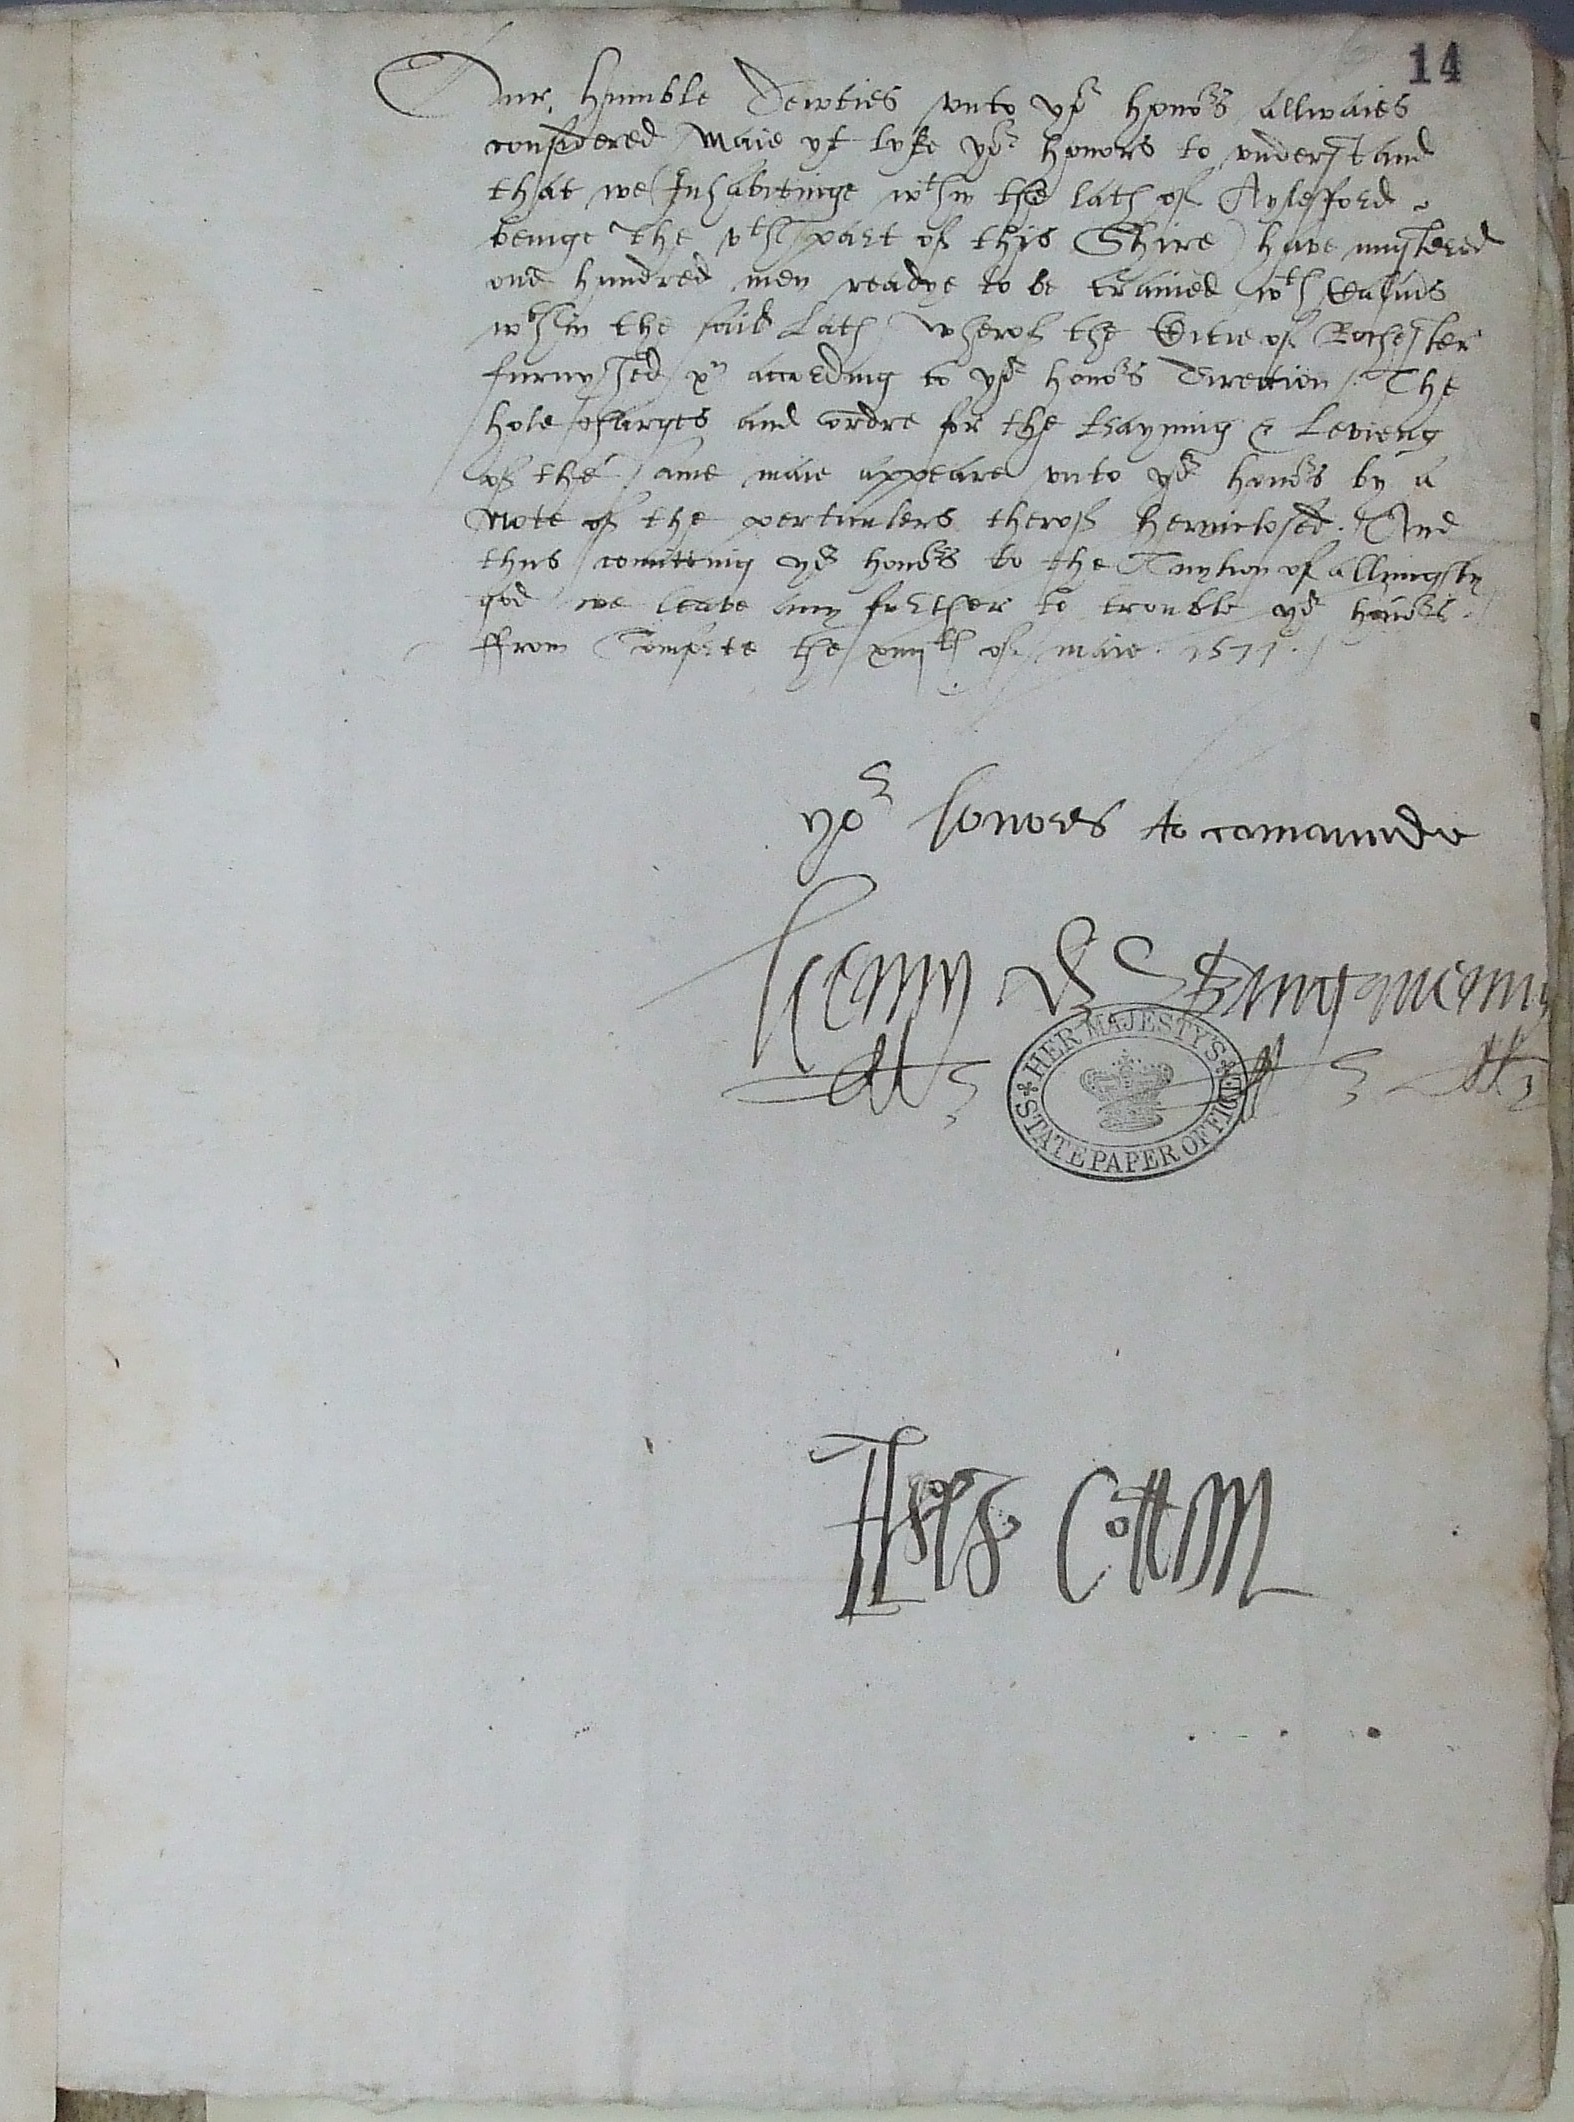 14
Our humble dewties unto yor honors allwaies
considered Maie yt lyke yor honors to understand
that we Inhabitinge wthin the lath of Aylesford
beinge the vth part of this Shire have mustered
one hundred men readye to be trained wth
wthin the said Lath wherof the Citie of Rochester
furnyshed xn according to yor honors direction. The
hole charges and ordre for the trayning & levieng
of the same maie appeare unto yor honors by a
Note of the perticulers therof herinclosed. And
thus comitting yor honors to the Tuytion of allmighty
god we leave any further to trouble yor honors.
ffrom the of maie 1577.
yor honors to comaunde
HER MAJESTY'S STATE PAPER OFFICE
Thos Cotton